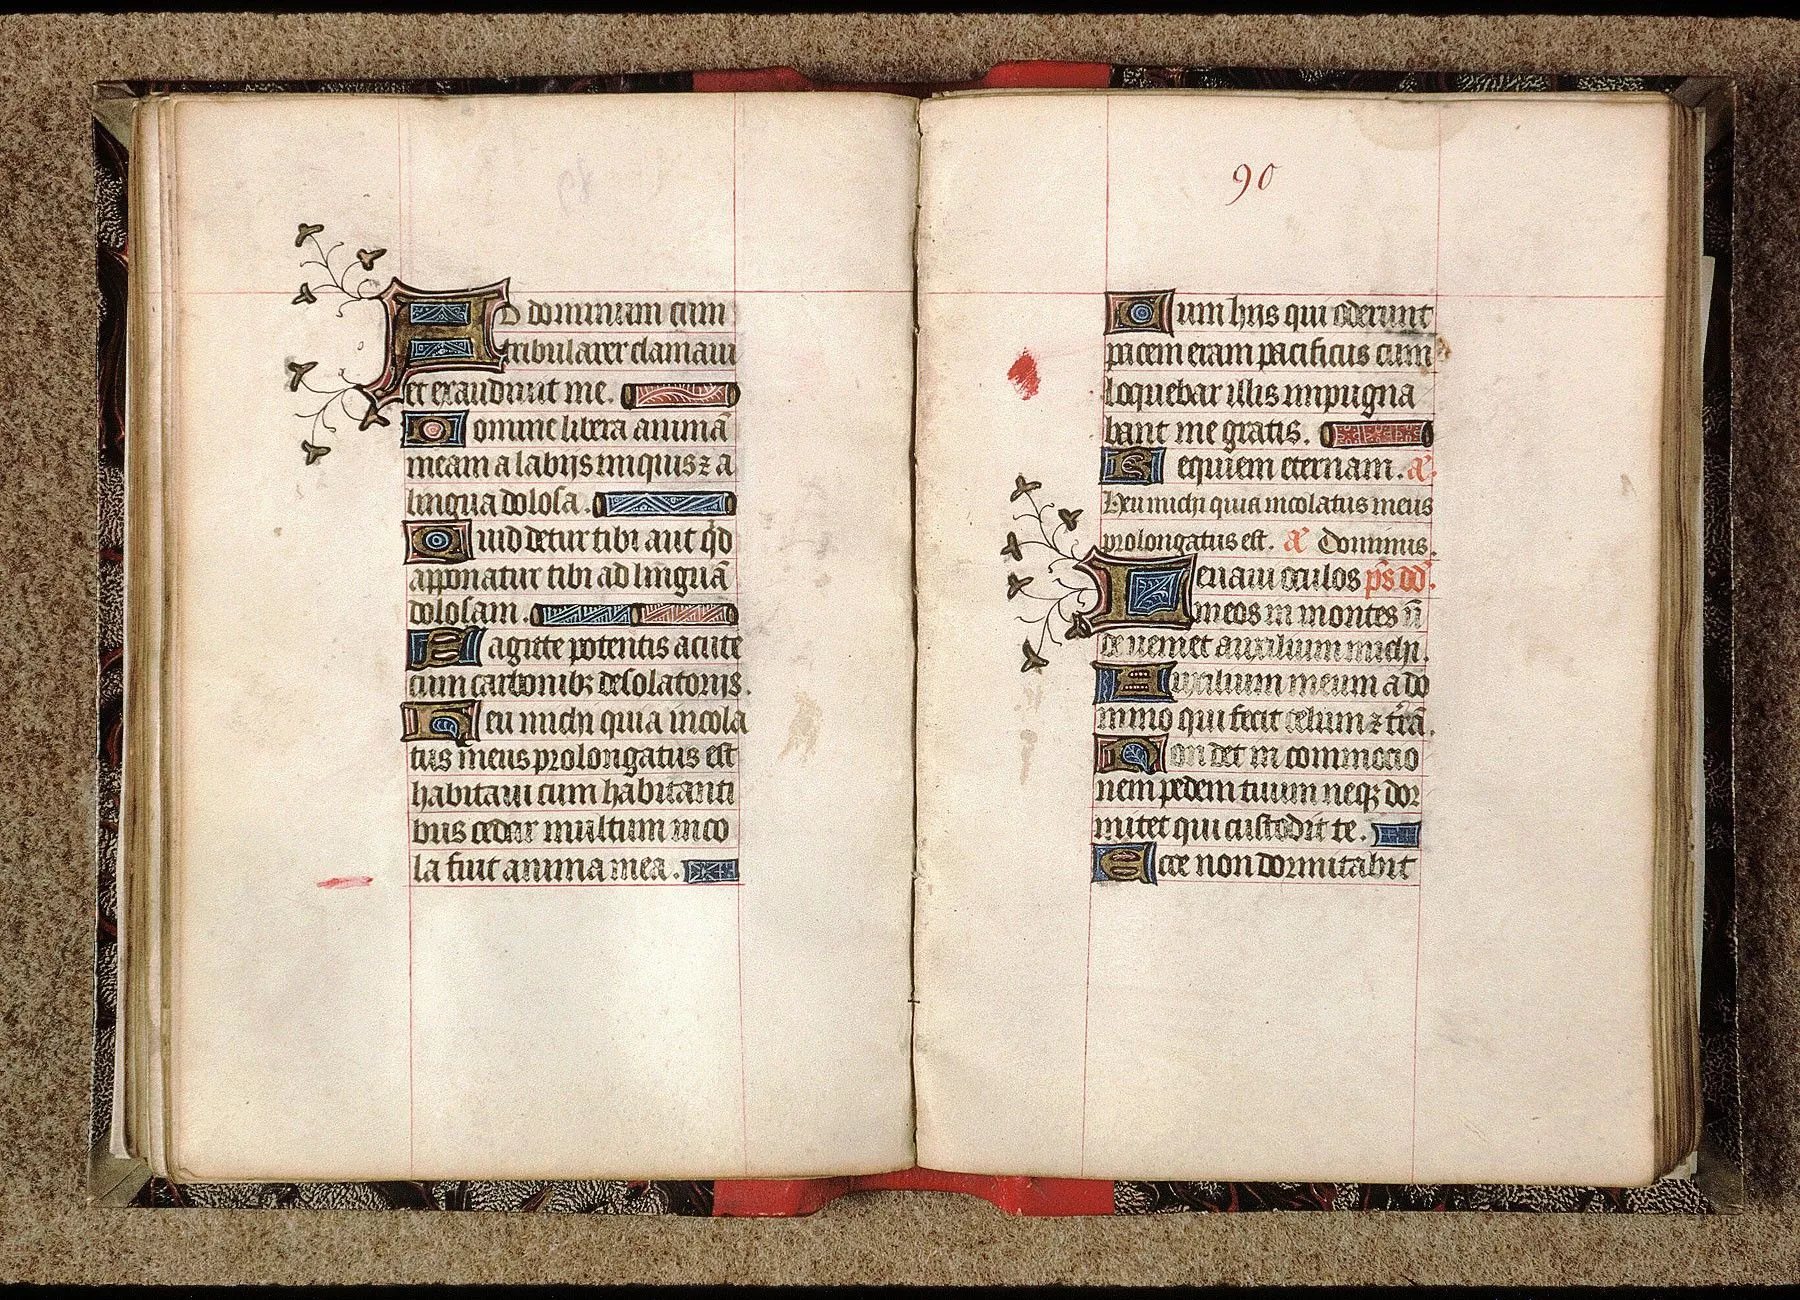 AD dominum cum
tribularer clamaui
et exaudiuit me.
Domine libera animā
meam a labijs iniquis ⁊ a
lingua dolosa.
Quid detur tibi aut qd̄
apponatur tibi ad linguā
dolosam.
Sagitte potentis acute
cum carbonibꝫ desolatorijs.
Heu michi quia incola
tus meus prolongatus est
habitaui cum habitanti
bus cedar multum inco
la fuit anima mea.
90
Cum hijs qui oderunt
pacem eram pacificus cum
loquebar illis impugna
bant me gratis.
Requiem eternam. a͞.
Heu michi quia incolatus meus
prolongatus est. a͞ Dominus.
Leuaui oculos p̄s dd̄.
meos in montes ū
de ueniet auxilium michi.
Auxilium meum a do
mino qui fecit celum ⁊ t̄rā.
Non det in commocio
nem pedem tuum neqꝫ dor
mitet qui custodit te.
Ecce non dormitabit